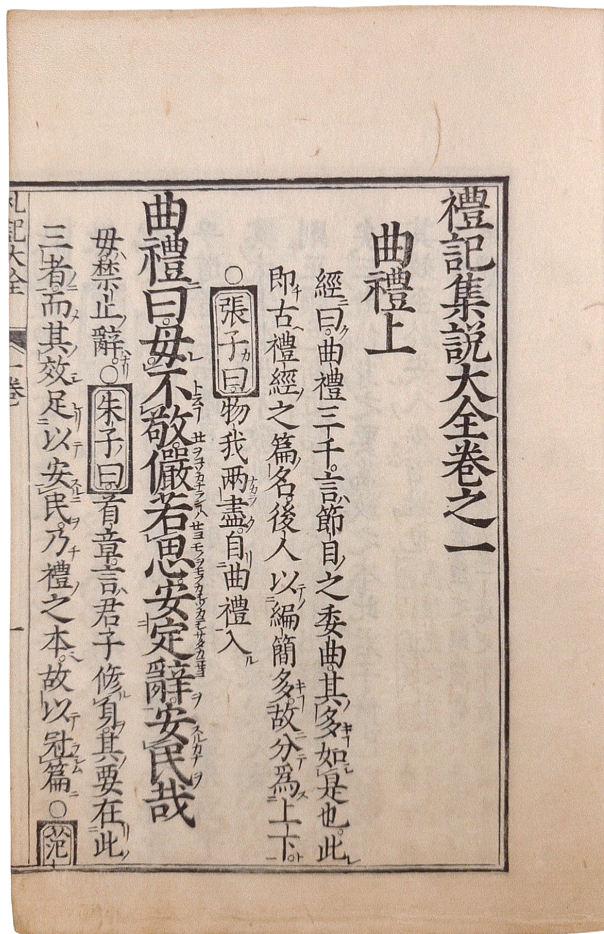 禮記集説大全卷之一
曲禮上
經曰曲禮三千言節目之委曲其多如是也此
即古禮經之篇名後人以編簡多故分爲上下
○張子曰物我兩盡自曲禮入
曲禮曰毋不敬儼若思安定辭安民哉
毋禁止辭○朱子曰首章言君子修身其要在此
三者而其效足以安民乃禮之本故以冠篇○范
礼記大全 一卷 一